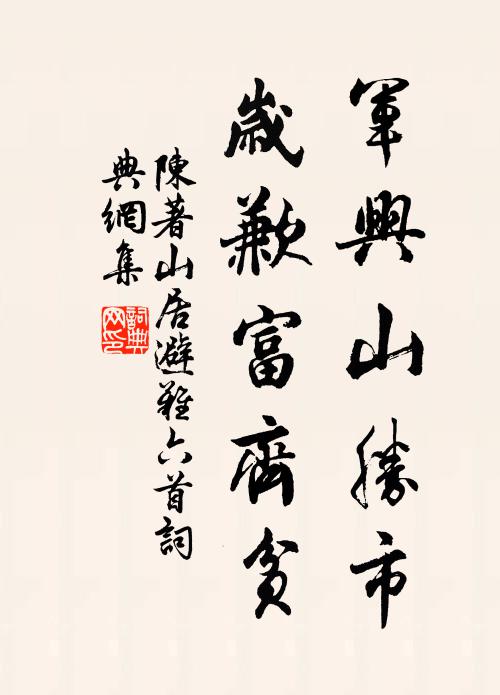 軍興山勝市
歲歉富齊貧
陳著山居避難六首詞
典網集
詞典網印